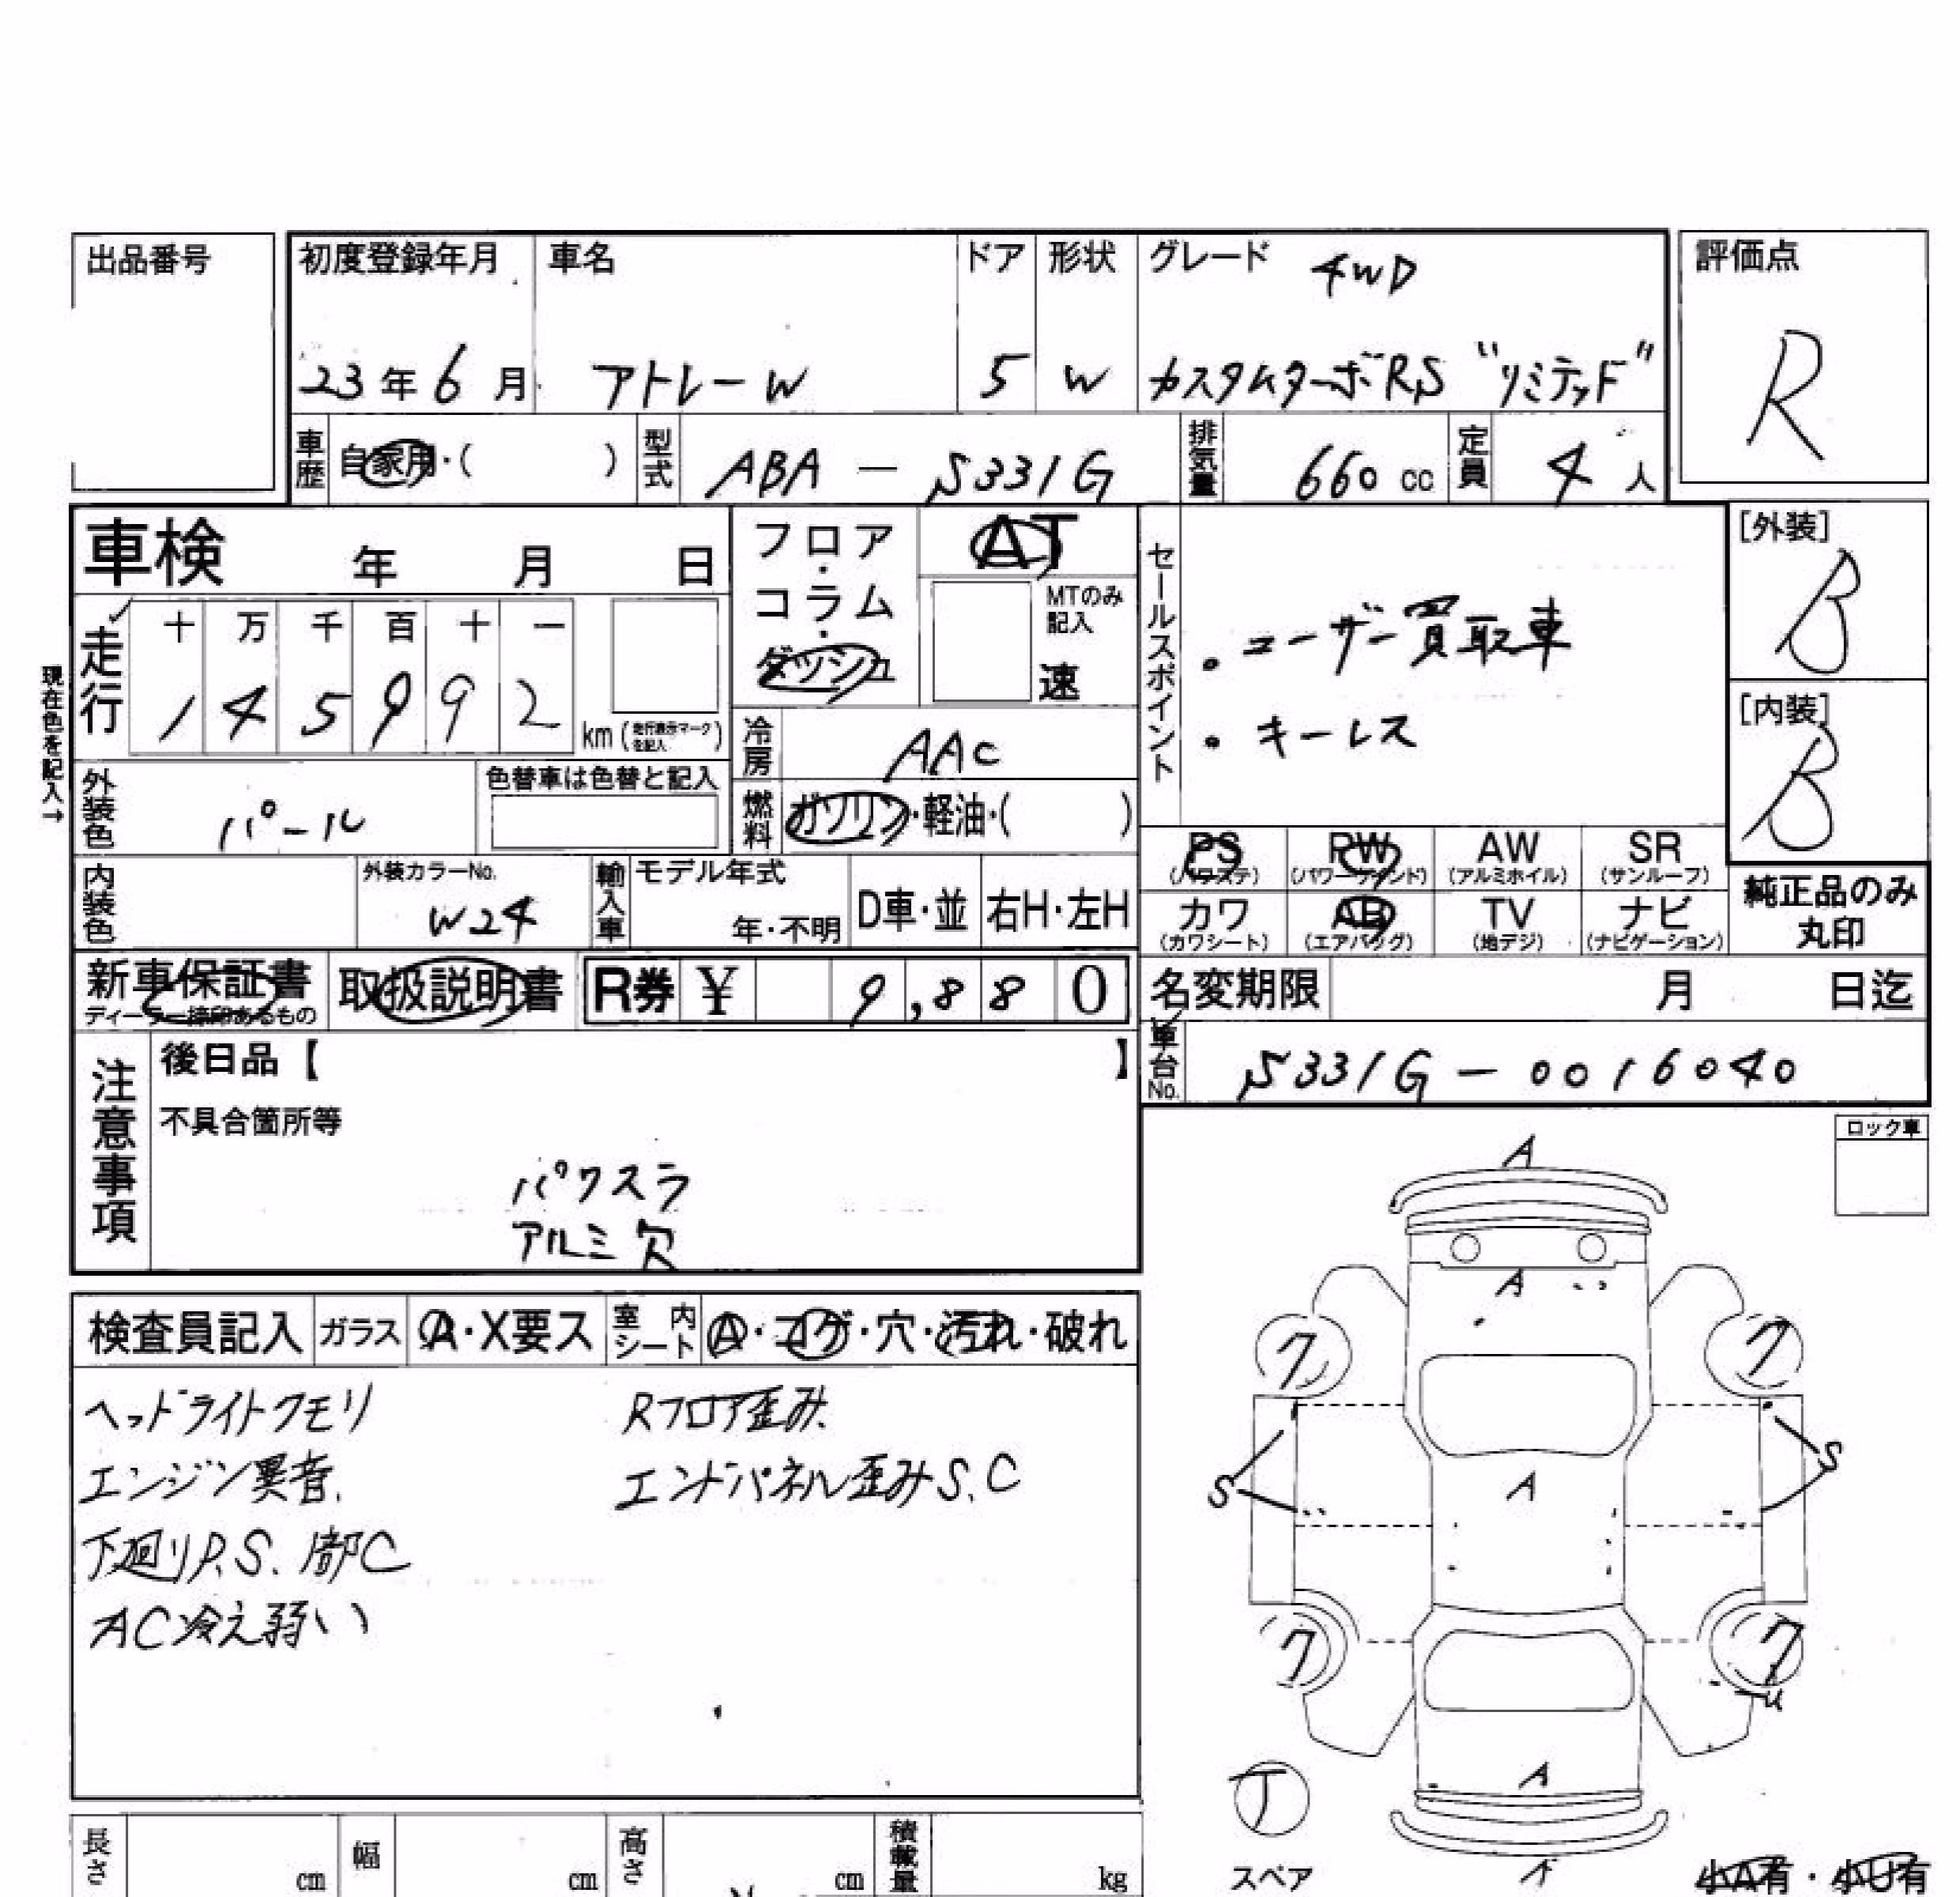 出品番号
初度登録年月 車名 ドア 形状 グレード 4WD 評価点
23年6月 アトレーW 5 W カスタムターボRS "リミテッド" R
車歴 自家用・( ) 型式 ABA－S331G 排気量 660cc 定員 4人
車検 年 月 日
フロア・コラム・ダッシュ AT
MTのみ記入
速
セールスポイント
・ユーザー買取車
・キーレス
[外装] B
[内装] B
走行 十 万 千 百 十 一
1 4 5 9 9 2 km (走行表示マークを記入)
現在色を記入→
冷房 AAC
外装色 パール 色替車は色替と記入
燃料 ガソリン・軽油・( )
PS (パワステ) PW (パワーウインド) AW (アルミホイル) SR (サンルーフ)
カワ (カワシート) AB (エアバッグ) TV (地デジ) ナビ (ナビゲーション)
純正品のみ
丸印
内装色 外装カラーNo. W24 輸入車 モデル年式 年・不明 D車・並 右H・左H
新車保証書 ディーラー捺印あるもの 取扱説明書 R券 ¥ 9,880
名変期限 月 日迄
車台No. S331G－0016040
注意事項
後日品【 】
不具合箇所等
パワスラ
アルミ欠
ロック車
検査員記入 ガラス A・X要ス 室内シート A・コゲ・穴・汚れ・破れ
ヘッドライトクモリ Rフロア歪み
エンジン異音. エンドパネル歪みS.C
下廻りP.S.部C
AC冷え弱い
A
A
ク ク
S S
A
ク ク
A
スペア
小A有・小U有
長さ cm 幅 cm 高さ cm 積載量 kg